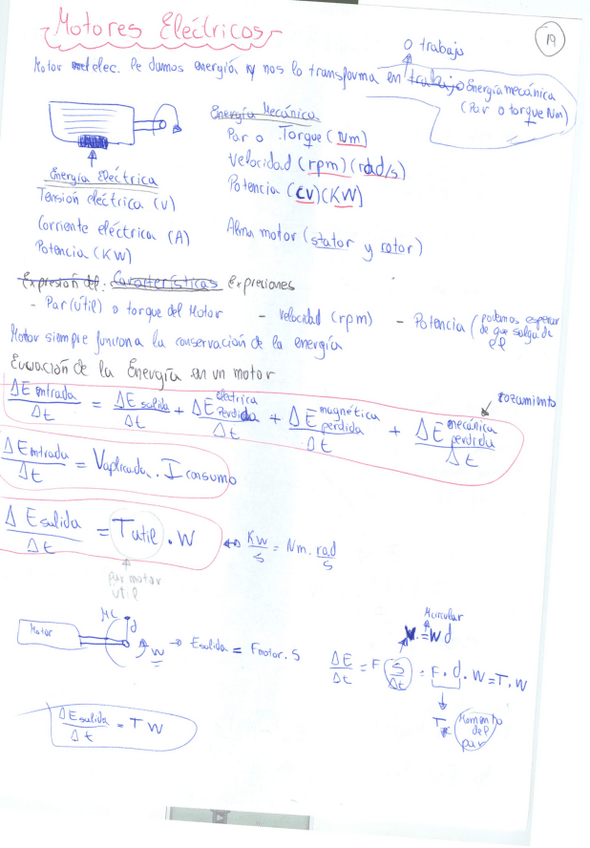 Motores Eléctricos
19
o trabajo
Motor elec. le damos energía y nos lo transforma en trabajo Energía mecánica
(Par o torque Nm)
Energía Mecánica
Par o Torque (Nm)
Velocidad (rpm) (rad/s)
Potencia (CV) (KW)
Energía Eléctrica
Tensión eléctrica (V)
Corriente eléctrica (A)
Potencia (KW)
Alma motor (stator y rotor)
Expresión def. Características Expresiones
- Par (útil) o torque del Motor - Velocidad (rpm) - Potencia (podemos esperar
de que salga de
él
Motor siempre funciona la conservación de la energía
Ecuación de la Energía en un motor
rozamiento
ΔE entrada / Δt = ΔE salida / Δt + ΔE eléctrica perdida / Δt + ΔE magnética perdida / Δt + ΔE mecánica perdida / Δt
ΔE entrada / Δt = Vaplicada . I consumo
ΔE salida / Δt = Tutil . W ↔ KW / s = Nm . rad / s
Par motor
util
Motor
MC
d
W
→ Esalida = Fmotor . S
M circular
V = W d
ΔE / Δt = F (S / Δt) = F . d . W = T . W
T
Momento
del
par
ΔE salida / Δt = T W